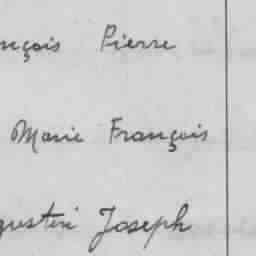 nçois Pierre
Marie François
gustin Joseph